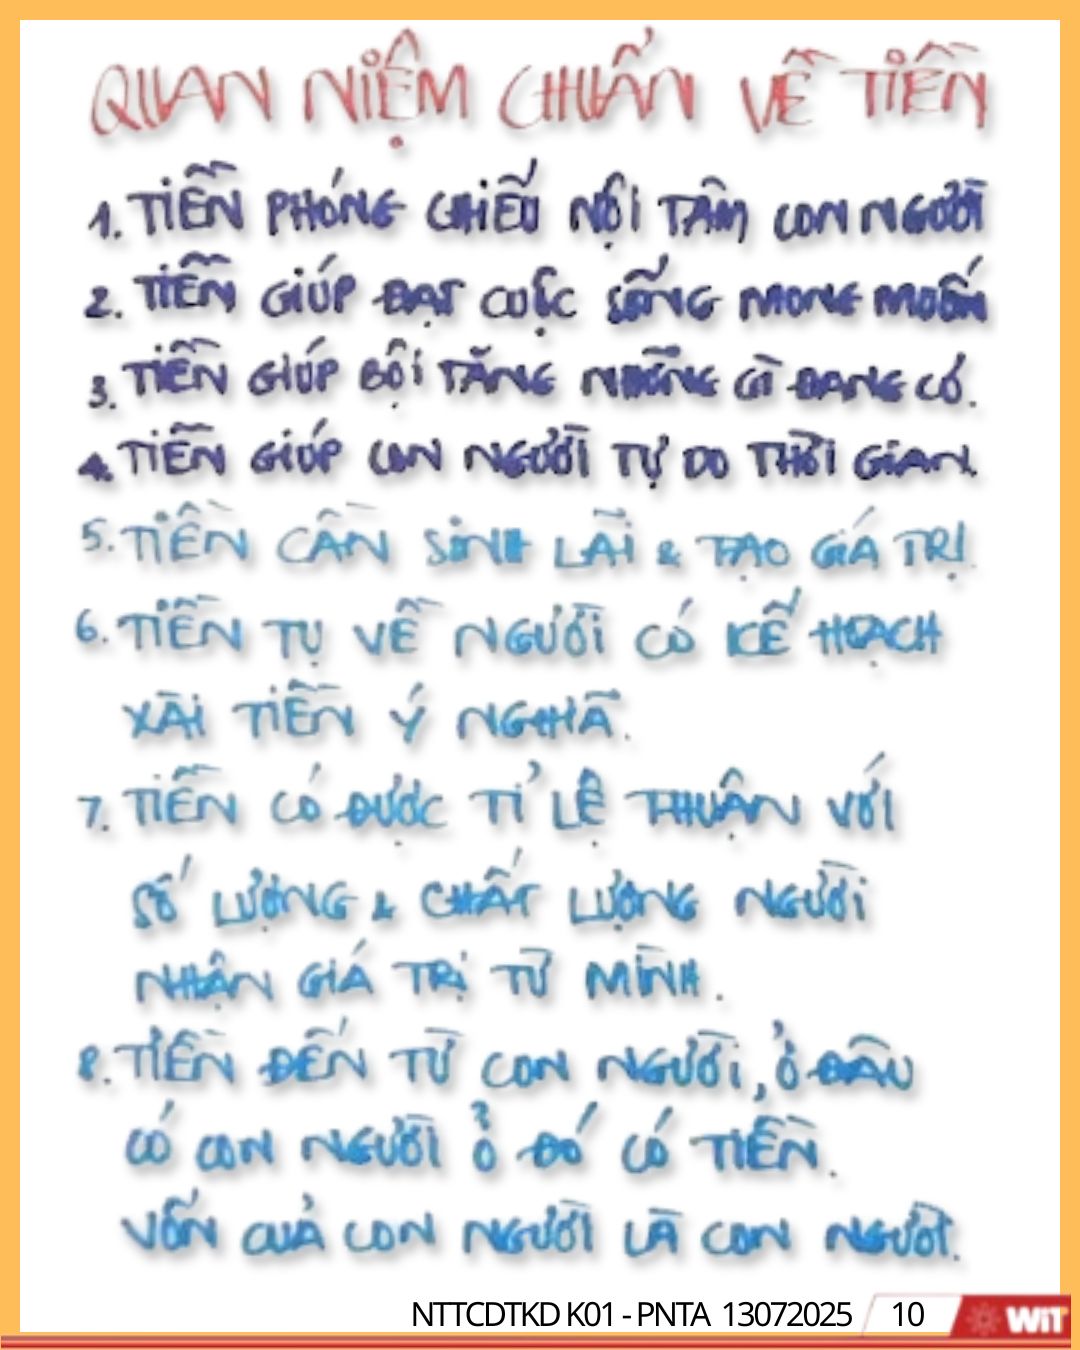 QUAN NIỆM CHUẨN VỀ TIỀN
1. TIỀN PHÓNG CHIẾU NỘI TÂM CON NGƯỜI
2. TIỀN GIÚP ĐẠT CUỘC SỐNG MONG MUỐN
3. TIỀN GIÚP BỘI TĂNG NHỮNG GÌ ĐANG CÓ.
4. TIỀN GIÚP CON NGƯỜI TỰ DO THỜI GIAN.
5. TIỀN CẦN SINH LÃI & TẠO GIÁ TRỊ.
6. TIỀN TỤ VỀ NGƯỜI CÓ KẾ HOẠCH
XÀI TIỀN Ý NGHĨA.
7. TIỀN CÓ ĐƯỢC TỈ LỆ THUẬN VỚI
SỐ LƯỢNG & CHẤT LƯỢNG NGƯỜI
NHẬN GIÁ TRỊ TỪ MÌNH.
8. TIỀN ĐẾN TỪ CON NGƯỜI, Ở ĐÂU
CÓ CON NGƯỜI Ở ĐÓ CÓ TIỀN.
VỐN CUẢ CON NGƯỜI LÀ CON NGƯỜI.
NTTCDTKD K01 - PNTA 13072025 10 WiT